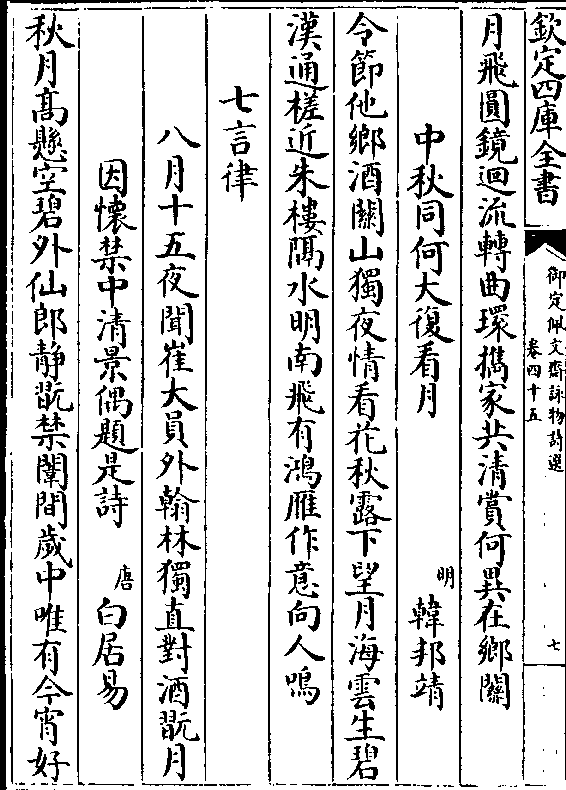 欽定四庫全書
御定佩文齋詠物詩選
卷四十五
七
月飛圓鏡迴流轉曲環攜家共清賞何異在鄉關
中秋同何大復看月
明
韓邦靖
令節他鄉酒關山獨夜情看花秋露下望月海雲生碧
漢通槎近朱樓隔水明南飛有鴻雁作意向人鳴
七言律
八月十五夜聞崔大員外翰林獨直對酒翫月
因懷禁中清景偶題是詩
唐
白居易
秋月高懸空碧外仙郎靜翫禁闈間歲中唯有今宵好